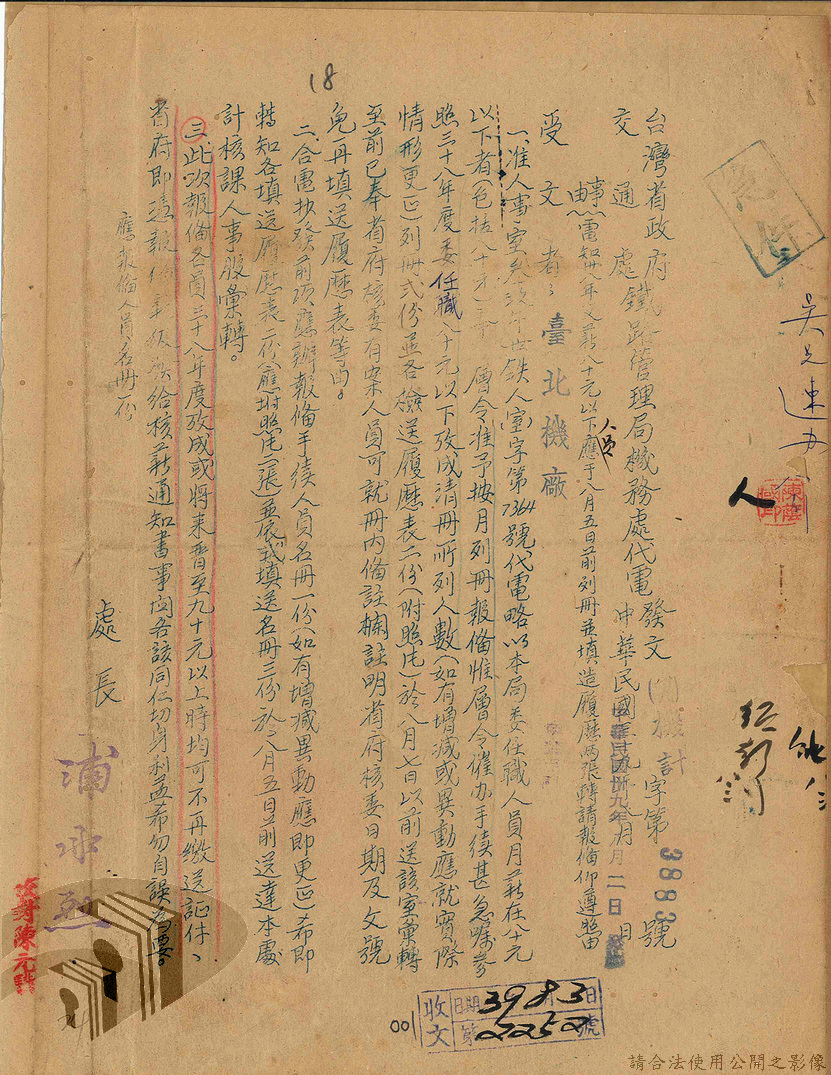 18
急件
台灣省政府
交通處鐵路管理局機務處代電 發文(  )機計字第3883號
中華民國卅九年八月二日
事由
電知卅八年支薪八十元以下人員應于八月五日前列冊並填造履歷兩張轉請報備仰遵照由
受文者：臺北機廠
一、准人事室鐵人(室)字第7364號代電略以本局委任職人員月薪在八十元
以下者(包括八十元)奉 層令准予按月列冊報備惟層令催办手續甚急囑參
照三十八年度委任職八十元以下攷成清冊所列人數(如有增減或異動應就實際
情形更正)列冊弍份並各檢送履歷表二份(附照片)於八月七日以前送該室彙轉
至前已奉省府核委有案人員可就冊內備註欄註明省府核委日期及文號
免再填送履歷表等由。
二、合電抄發前項應辦報備手續人員名冊一份(如有增減異動應即更正)希即
轉知各填送履歷表二份(應附照片一張)並依式填送名冊三份於八月五日前送達本處
計核課人事股彙轉。
三、此次報備各員三十八年度攷成或將來晋至九十元以上時均可不再繳送証件、
省府即憑報備給核薪通知書事関各該同仁切身利益希勿自誤為要。
應報備人員名冊一份
處長 浦冰烈
陳元
收文 日期 39 8 3日 第2252號
001
請合法使用公開之影像